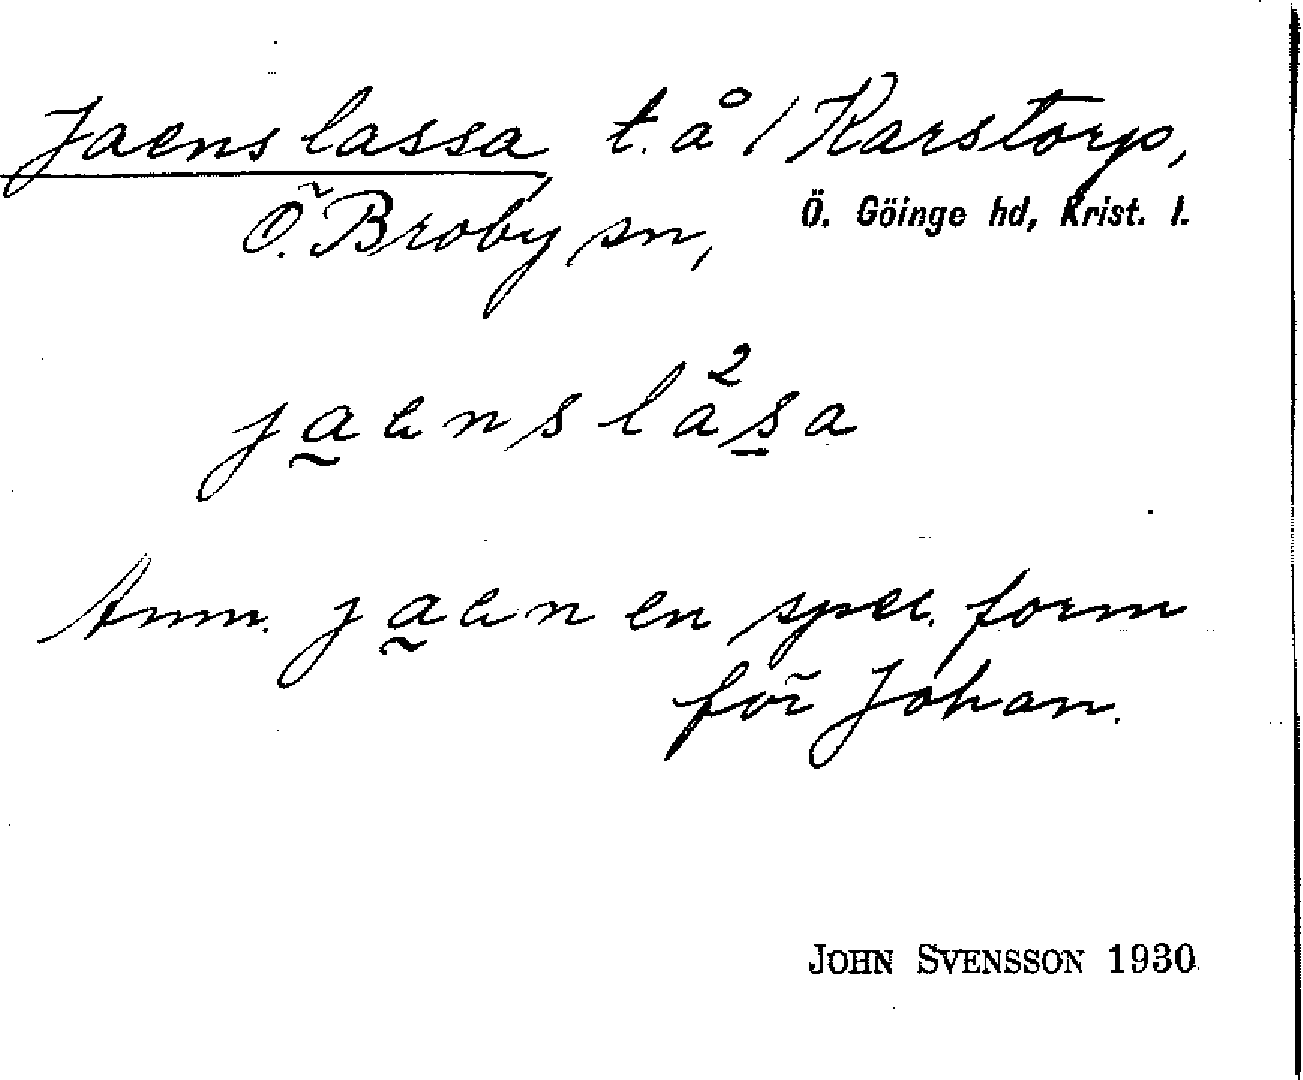 Jaenslassa t. å / Karstorp,
Ö. Broby sn, Ö. Göinge hd, Krist. l.
jaensla²sa
Anm. jaen en spec. form
för Johan.
JOHN SVENSSON 1930